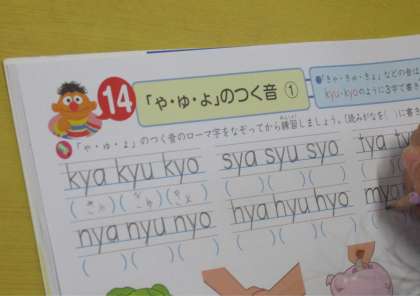 14 「や・ゆ・よ」のつく音 ①
「きゃ・きゅ・きょ」などの音は
kyu・kyoのように3字で書き
「や・ゆ・よ」のつく音のローマ字をなぞってから練習しましょう。(読みがなを( )に書き
kya kyu kyo sya syu syo tya ty
(きゃ)(きゅ)(きょ) ( )( )( ) (
nya nyu nyo hya hyu hyo myo
( )( )( ) ( )( )( ) (